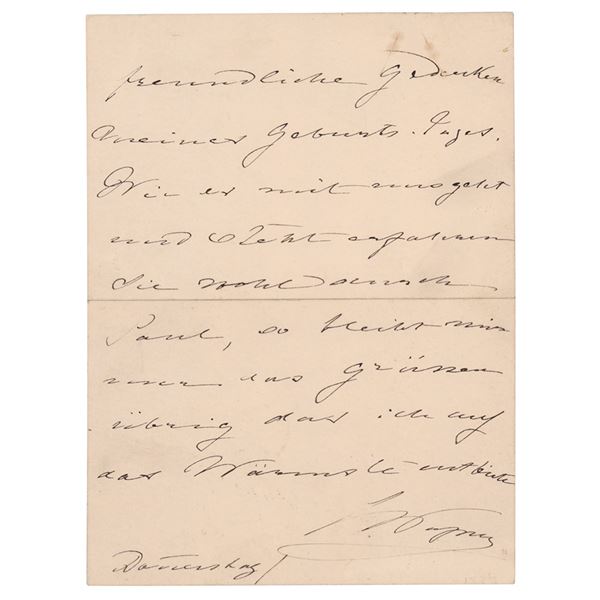 freundliche Gedenken
meines Geburts-Tages.
Wie es mit uns geht
und steht erfahren
Sie wohl durch
Paul, so bleibt mir
nur das Grüssen
übrig das ich auf
das Wärmste entbiete
C. Wagner
Donnerstag